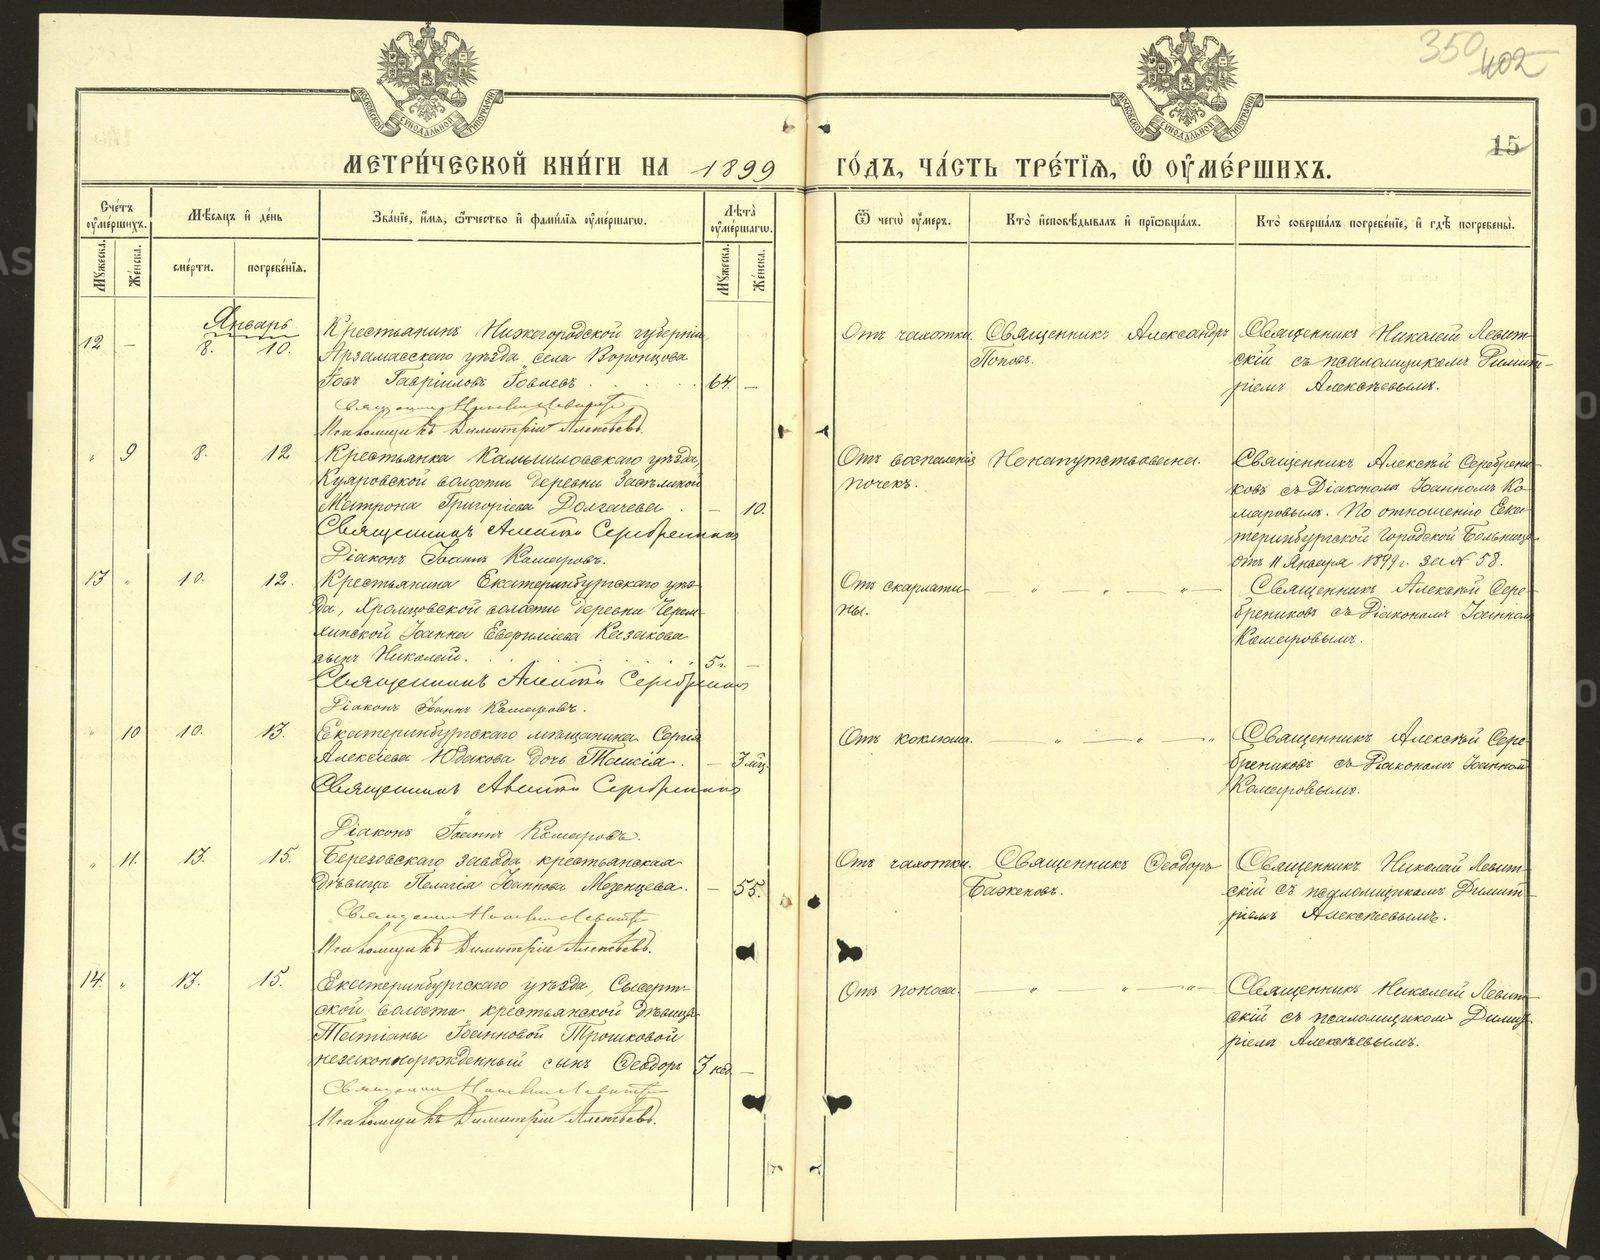 350
402
15
МЕТРИ́ЧЕСКОЙ КНИ́ГИ НА 1899
ГО́ДЪ, ЧА́СТЬ ТРЕ́ТІѦ, Ѡ҆ ОУ҆МЕ́РШИХЪ.
Сче́тъ оу҆ме́ршихъ.
Мꙋ́жеска.
Же́нска.
Мѣ́сѧцъ и҆ де́нь
сме́рти.
погребе́нїѧ.
Зва́нїе, и҆́мѧ, ѻ҆́тчество и҆ фами́лїѧ оу҆ме́ршагѡ.
Лѣ́та оу҆ме́ршагѡ.
Мꙋ́жеска.
Же́нска.
Ѿ чегѡ̀ оу҆́меръ.
Кто̀ и҆сповѣ́дывалъ и҆ прїѡбща́лъ.
Кто̀ соверша́лъ погребе́нїе, и҆ гдѣ̀ погребены̀.
Январь
12 – 8. 10.
Крестьянинъ Нижегородской губерніи
Арзамасскаго уѣзда села Воронцова
Іовъ Гавріиловъ Іовлевъ . . . 64 –
Священникъ Николай Левитскій
Псаломщикъ Димитрій Алексѣевъ.
Отъ чахотки.
Священникъ Александръ
Поповъ.
Священникъ Николай Левит-
скій съ псаломщикомъ Димит-
ріемъ Алексѣевымъ.
" 9 8. 12
Крестьянка Камышловскаго уѣзда,
Куяровской волости деревни
Матрона Григоріева Долгачева . – 10.
Священникъ Алексѣй Серебренниковъ
Діаконъ Іоаннъ Комаровъ.
Отъ воспаленія
почекъ.
Ненапутствована.
Священникъ Алексѣй Серебрени-
ковъ съ Діакономъ Іоанномъ Ко-
маровымъ. По отношенію Ека-
теринбургской Городской Больницы
отъ 11 Января 1899 г. за № 58.
13 " 10. 12.
Крестьянина Екатеринбургскаго уѣз-
да, Хромцовской волости деревни Черем-
хинской Іоанна Евфиміева Казакова
сынъ Николай. . . . . . . 5 г. –
Священникъ Алексѣй Серебренниковъ
Діаконъ Іоаннъ Комаровъ.
Отъ скарлати-
ны.
– " – " – " –
Священникъ Алексѣй Сере-
брениковъ съ Діакономъ Іоанномъ
Комаровымъ.
" 10 10. 13.
Екатеринбургскаго мѣщанина Сергія
Алексіева Юдакова дочь Таисія . – 3 мѣс.
Священникъ Алексѣй Серебренниковъ
Діаконъ Іоаннъ Комаровъ.
Отъ коклюша.
– " – " – "
Священникъ Алексѣй Сере-
брениковъ съ Діакономъ Іоанномъ
Комаровымъ.
" 11. 13. 15.
Березовскаго завода крестьянская
дѣвица Пелагія Іоаннова Мезенцева. – 55.
Священникъ Николай Левитскій
Псаломщикъ Димитрій Алексѣевъ.
Отъ чахотки.
Священникъ Ѳеодоръ
Баженовъ.
Священникъ Николай Левит-
скій съ псаломщикомъ Димит-
ріемъ Алексѣевымъ.
14. " 13. 15.
Екатеринбургскаго уѣзда, Сысерт-
ской волости крестьянской дѣвицы
Татіаны Іоанновой Трошковой
незаконнорожденный сынъ Ѳеодоръ 3 нед. –
Священникъ Николай Левитскій
Псаломщикъ Димитрій Алексѣевъ.
Отъ поноса.
– " – " – " –
Священникъ Николай Левит-
скій съ псаломщикомъ Димит-
ріемъ Алексѣевымъ.